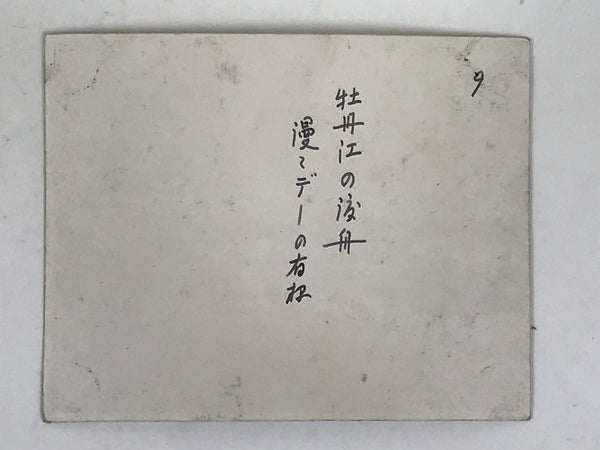 9
牡丹江の渡舟
漫々デーの有様